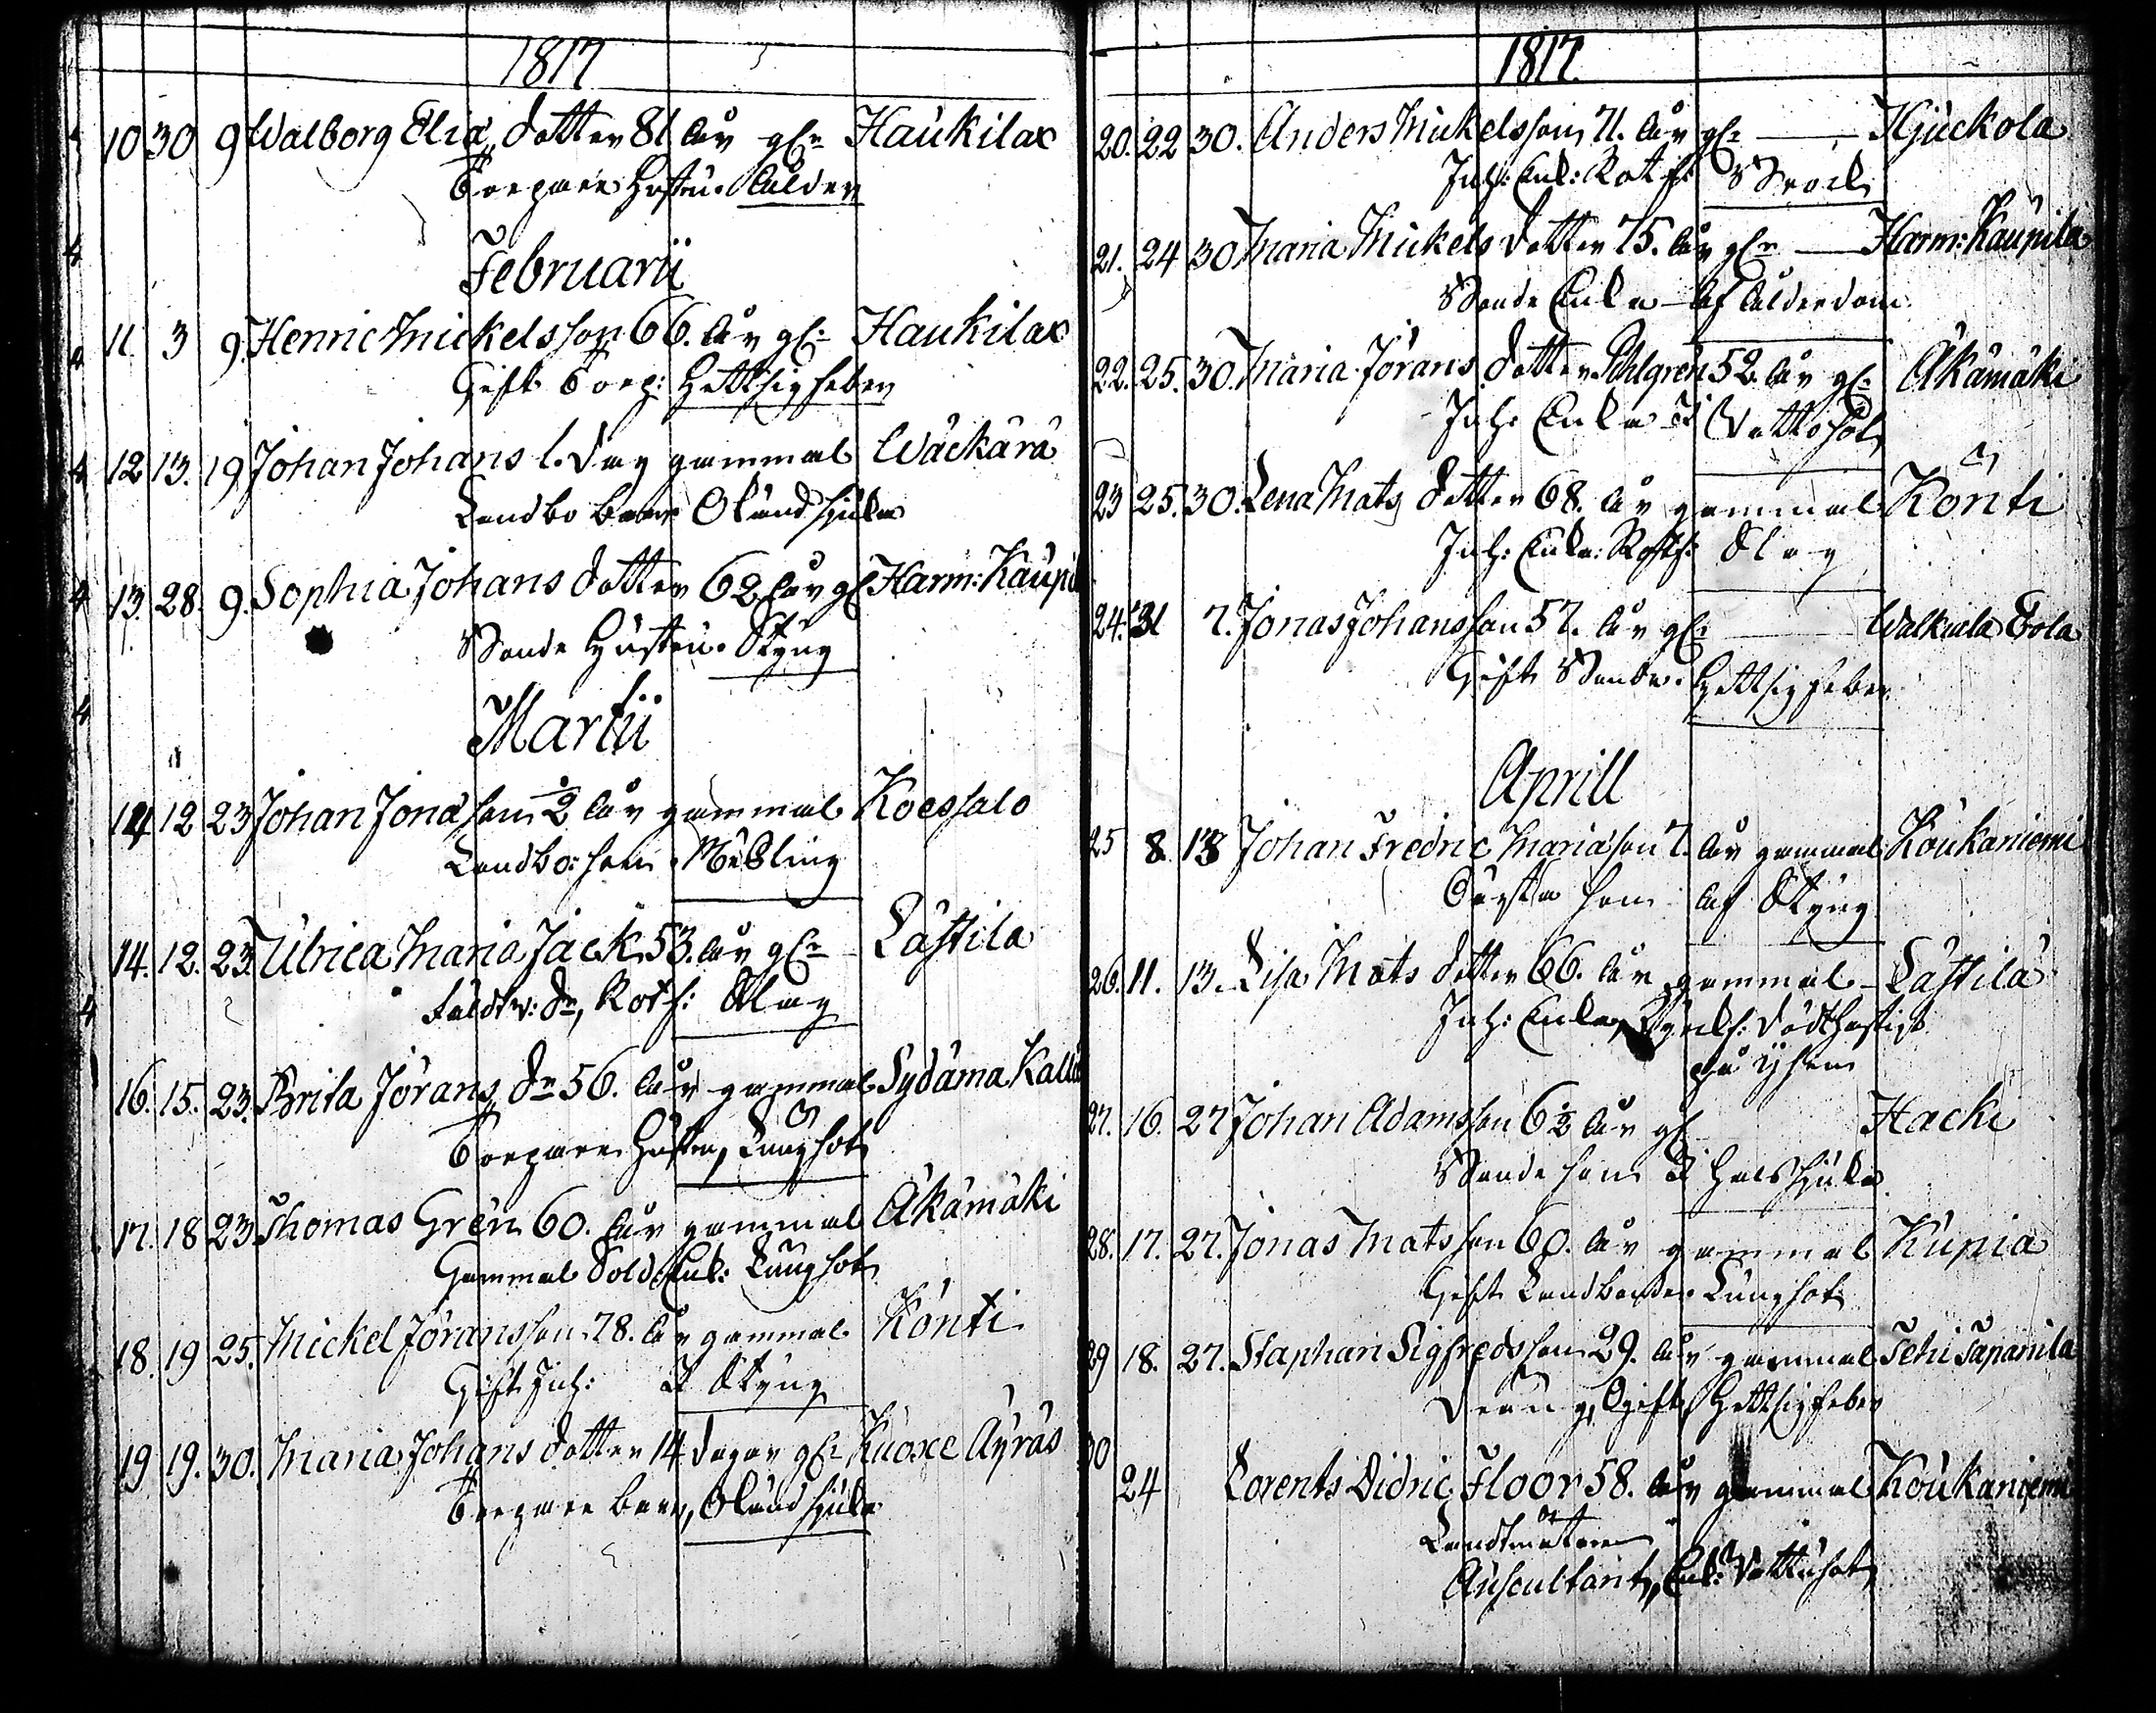 1817
10 30 9 Walborg Elia dotter 81 år gl. Haukilax
Torpare Hustru. Ålder
Februarii
11. 3 9. Henric Mickelsson 66. år gl. Haukilax
Gift Torp: Hettsig feber
12 13. 19 Johan Johans 1. dag gammal Wäckärä
Landbo barn Okänd sjuka
13. 28. 9. Sophia Johans dotter 62 år gl. Harm: Kaupi
Bonde Hustru. Styng
Martii
14 12 23 Johan Jonasson ½ år gammal Koessalo
Landbo: son. Mässling
14. 12. 23. Ulrica Maria Jack 53. år gl. Låstila
Rotf: Slag
16. 15. 23. Brita Jörans dr 56. år gammal Sydäma Kalla
Torpare Hustru, Lungsot
17. 18 23. Thomas Grén 60. år gammal Äkämäki
Gammal Sold: Enk: Lungsot
18. 19 25. Mickel Jöransson 78. år gammal. Konti
Gift Inh: Styng
19 19. 30. Maria Johans dotter 14 dagar gl. Kuoxe Äyräs
Torpare barn, Okänd sjuka
1817.
20. 22 30. Anders Mickelsson 71. år gl. Kjuckola
Inh: Enk: Rotf:
21. 24 30 Maria Mickels dotter 75. år gl. Harm: Kaupila
Bonde Enka Af Ålderdom
22. 25. 30. Maria Jörans dotter Pihlgren 52. år gl. Äkämäki
Inh: Enka Vattusot
23 25. 30. Lena Mats dotter 68. år gammal Konti
Inh: Enka: Rotf: Slag
24. 31 7. Jonas Johansson 57. år gl. Walkiala
Gift Bonde. Hettsig feber
Aprill
25 8. 13 Johan Fredric Mariason 7. år gammal Koukaniemi
son af Styng
26. 11. 13. Lisa Mats dotter 66. år gammal Låstila
Inh: Enka, död hastigt
på
27. 16. 27 Johan Adamsson 6½ år gl. Hacki
Bonde son Halssjuka
28. 17. 27. Jonas Matsson 60. år gammal Kupia
Gift Landbonde. Lungsot
29 18. 27. Staphan Sigfredsson 29. år gammal
Dräng, Ogift, Hettsig feber
30
24 Lorents Didric Floor 58. år gammal Koukaniemi
Landtmäteri
Auscultant, Enk: Vattusot